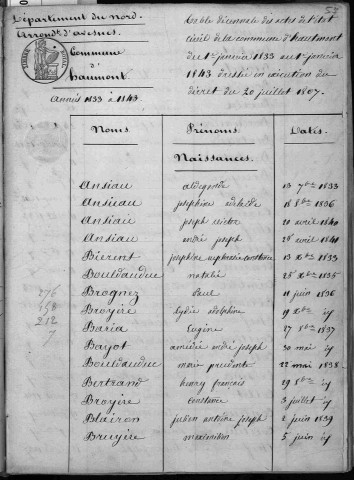 53
Département du Nord.
Arrondt. d'avesnes.
Commune
d'haumont.
Années 1833 à 1843.
Table décennale des actes de l'état
civil de la commune d'hautmont
du 1er janvier 1833 au 1er janvier
1843 dressée en exécution du
décret du 20 juillet 1807.
Noms Prénoms Dates.
Naissances.
Ansiau aldegonde 13 7bre 1833
Ansieau joséphine adelaïde 18 8bre 1836
Ansiau joseph victor 20 avril 1840
Ansiau andré joseph 28 avril 1841
Bierent joséphine euphrasie constance 13 Xbre 1833
Bouldauduc natalie 28 Xbre 1835
Brognez Paul 11 juin 1836
Broyère lydie adolphine 19 Xbre id
Baria Eugène 27 8bre 1837
Bayot amédée andré joseph 30 mai id
Bouldauduc marie prudente 22 mai 1838
Bertrand henry françois 29 8bre id
Broyère constance 3 juillet id
Blairon julien antoine joseph 2 juin 1839
Bruyère maximilien 5 juin id
276
458
212
7